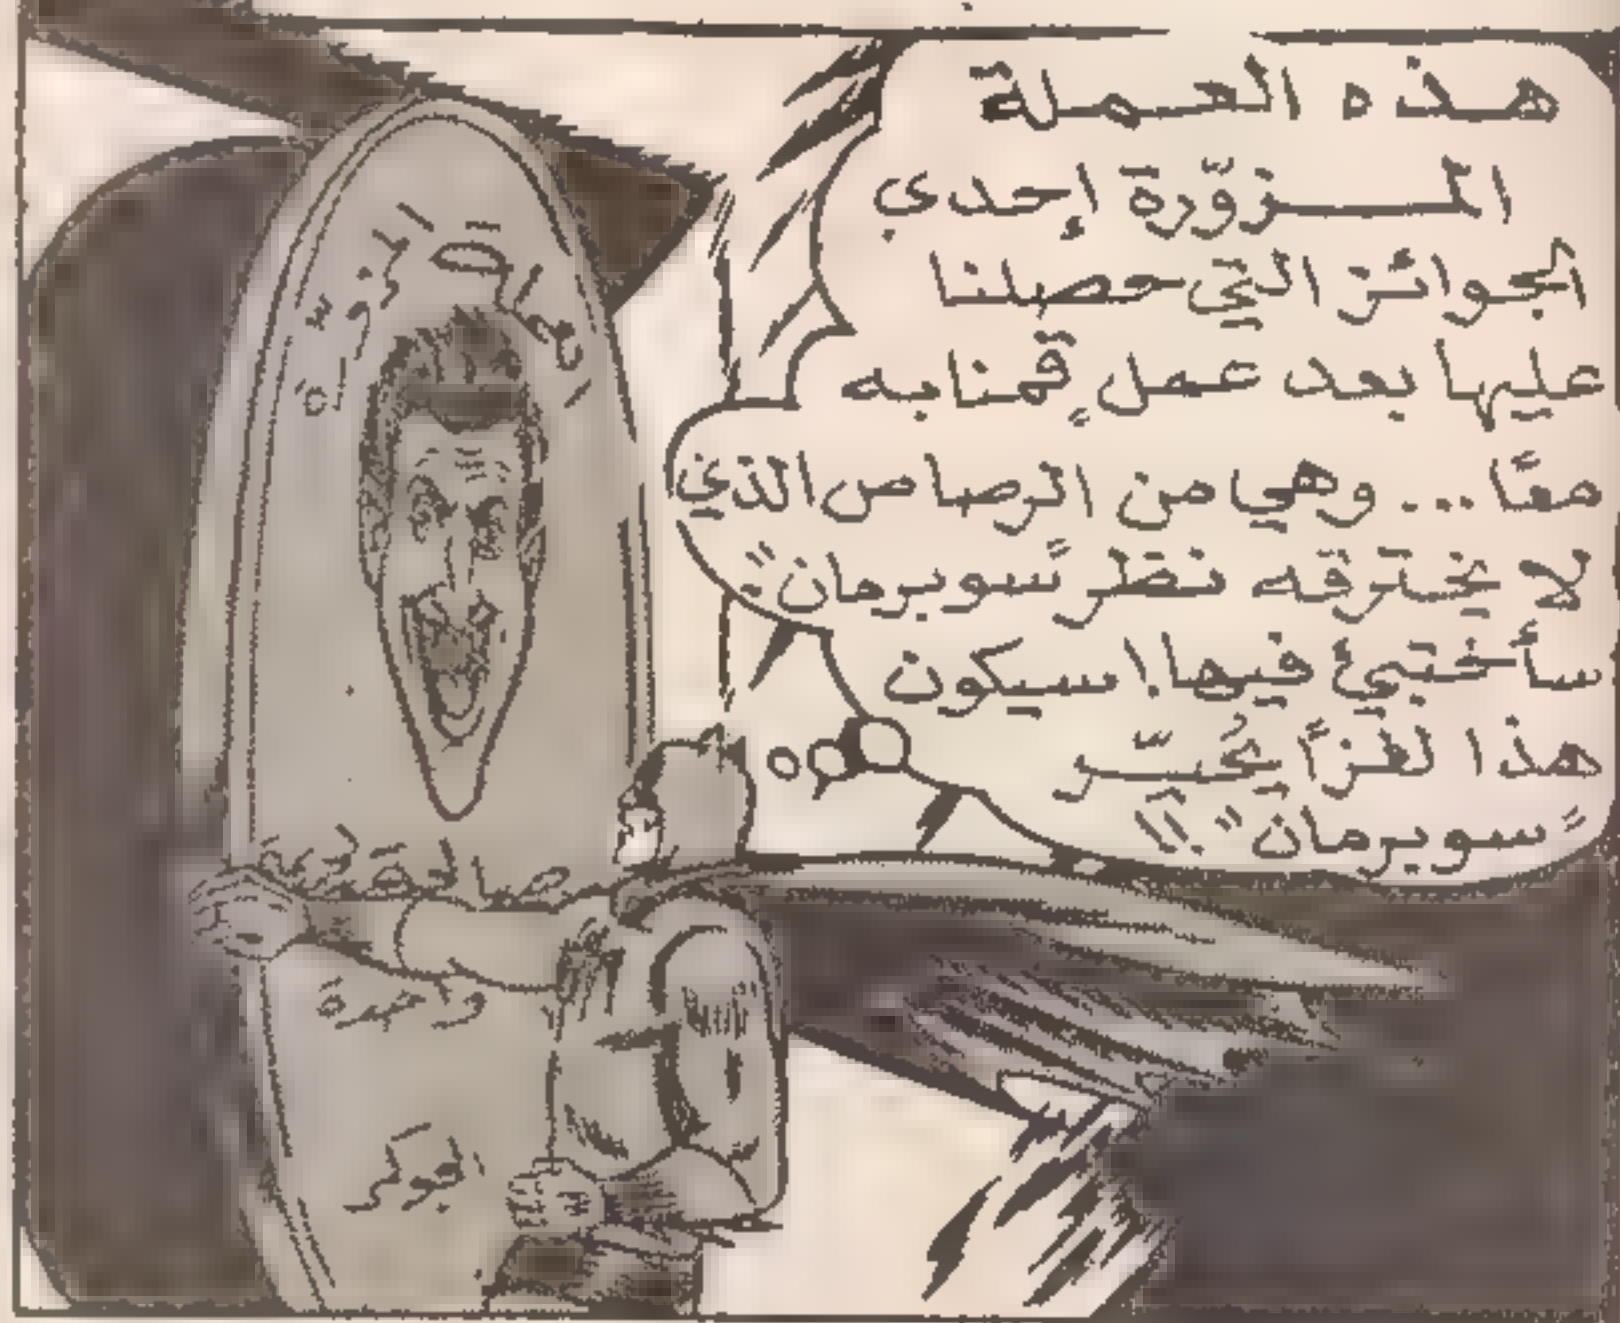 هذه العملة
المـزوّرة إحدى
الجوائز التي حصلنا
عليها بعد عملٍ قمنا به
معًا... وهي من الرصاص الذي
لا يخترقه نظر "سوبرمان".
سأختبئ فيها! سيكون
هذا لغزًا يُحيّر
"سوبرمان" !!
صالحة لمرة
واحدة